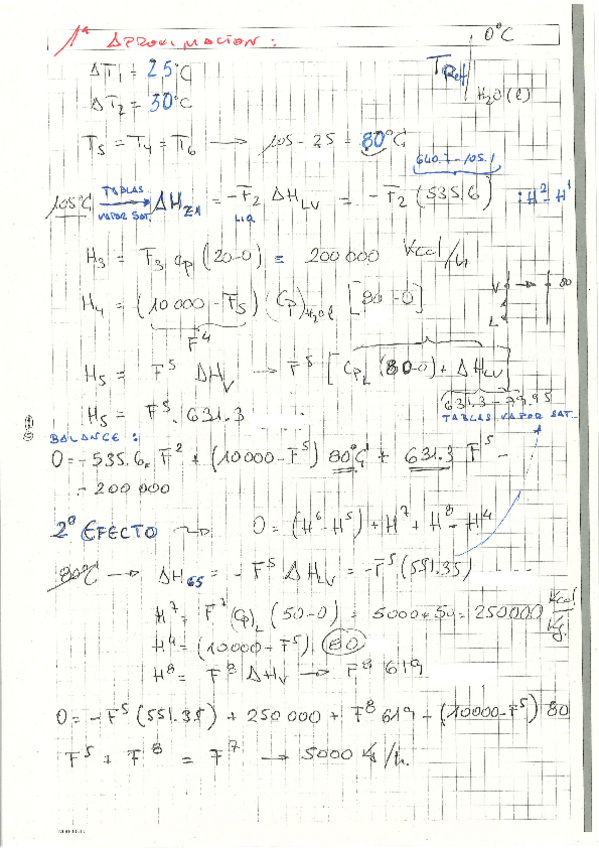 1ª APROXIMACION:
0°C
ΔT1 = 25°C
TRef
ΔT2 = 30°C
H2O (l)
T5 = T4 = T6 → 105 - 25 = 80°C
640.7 - 105.1
105°C TABLAS VAPOR SAT. → ΔH21 = -F2 ΔHLV = -F2 (535.6) : H2 - H1
LIQ
H3 = F3 cp (20-0) = 200 000 Kcal/h
H4 = (10 000 - F5) (Cp)H2O l [80 - 0]
V → 80
L
F4
H5 = F5 ΔHV → F5 [CPL (80-0) + ΔHLV]
631.3 - 79.95
H5 = F5 . 631.3
TABLAS VAPOR SAT.
BALANCE:
0 = -535.6 . F2 + (10000 - F5) 80°C + 631.3 F5 -
- 200 000
2º EFECTO → 0 = (H6 - H5) + H7 + H8 - H4
80°C → ΔH65 = - F5 ΔHLV = -F5 (551.35)
H7 = F7 (Cp)L (50-0) = 5000 * 50 = 250000 Kcal/Kg.
H4 = (10000 - F5) 80
H8 = F8 ΔHV → F8 619
0 = -F5 (551.35) + 250 000 + F8 619 - (10000 - F5) 80
F5 + F8 = F7 → 5000 Kg/h.